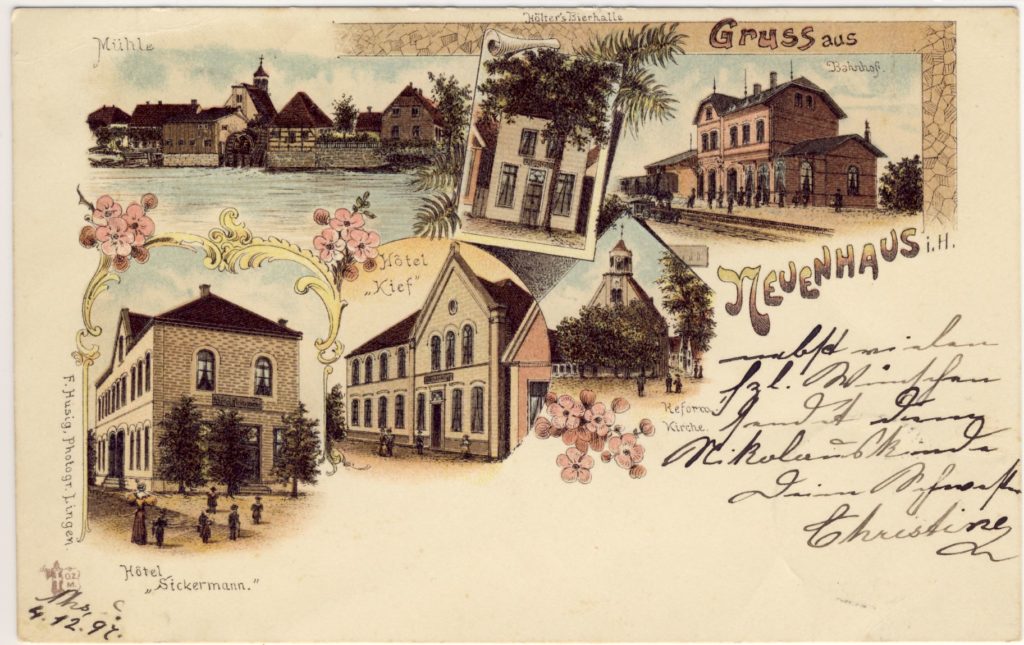 Hölter's Bierhalle
Mühle
Gruss aus
Bahnhof.
NEUENHAUS i.H.
Hôtel
„Kief"
Reform.
Kirche.
nebst vielen
hzl. Wünschen
sendet dem
Nikolauskinde
Deine Schwester
Christine
F. Husig, Photogr. Lingen.
Hôtel
„Sickermann."
4.12.97.